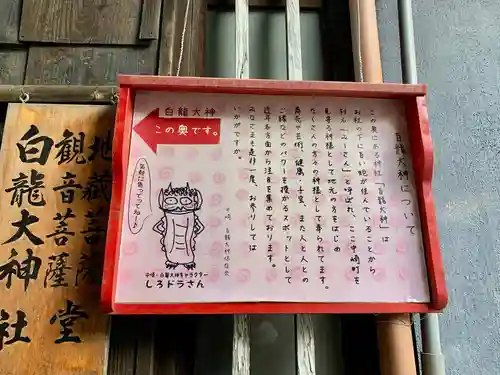 白龍大神
この奥です。
白龍大神について
この奥にある神社「白龍大神」は
お社の下に白い蛇が住んでいることから
別名「みーさん」と呼ばれ、ここ中崎町を
見守る神様として地元の方をはじめ
たくさんの方々の神様として奉られてます。
寿命や芸術、健康・子宝、また人と人との
ご縁などのパワーを授かるスポットとして
近年多方面から注目を集めております。
みなさまも是非一度、お参りしては
いかがですか。
中崎・白龍大神キャラクター
しろドラさん
地蔵菩薩
観音菩薩堂
白龍大神社